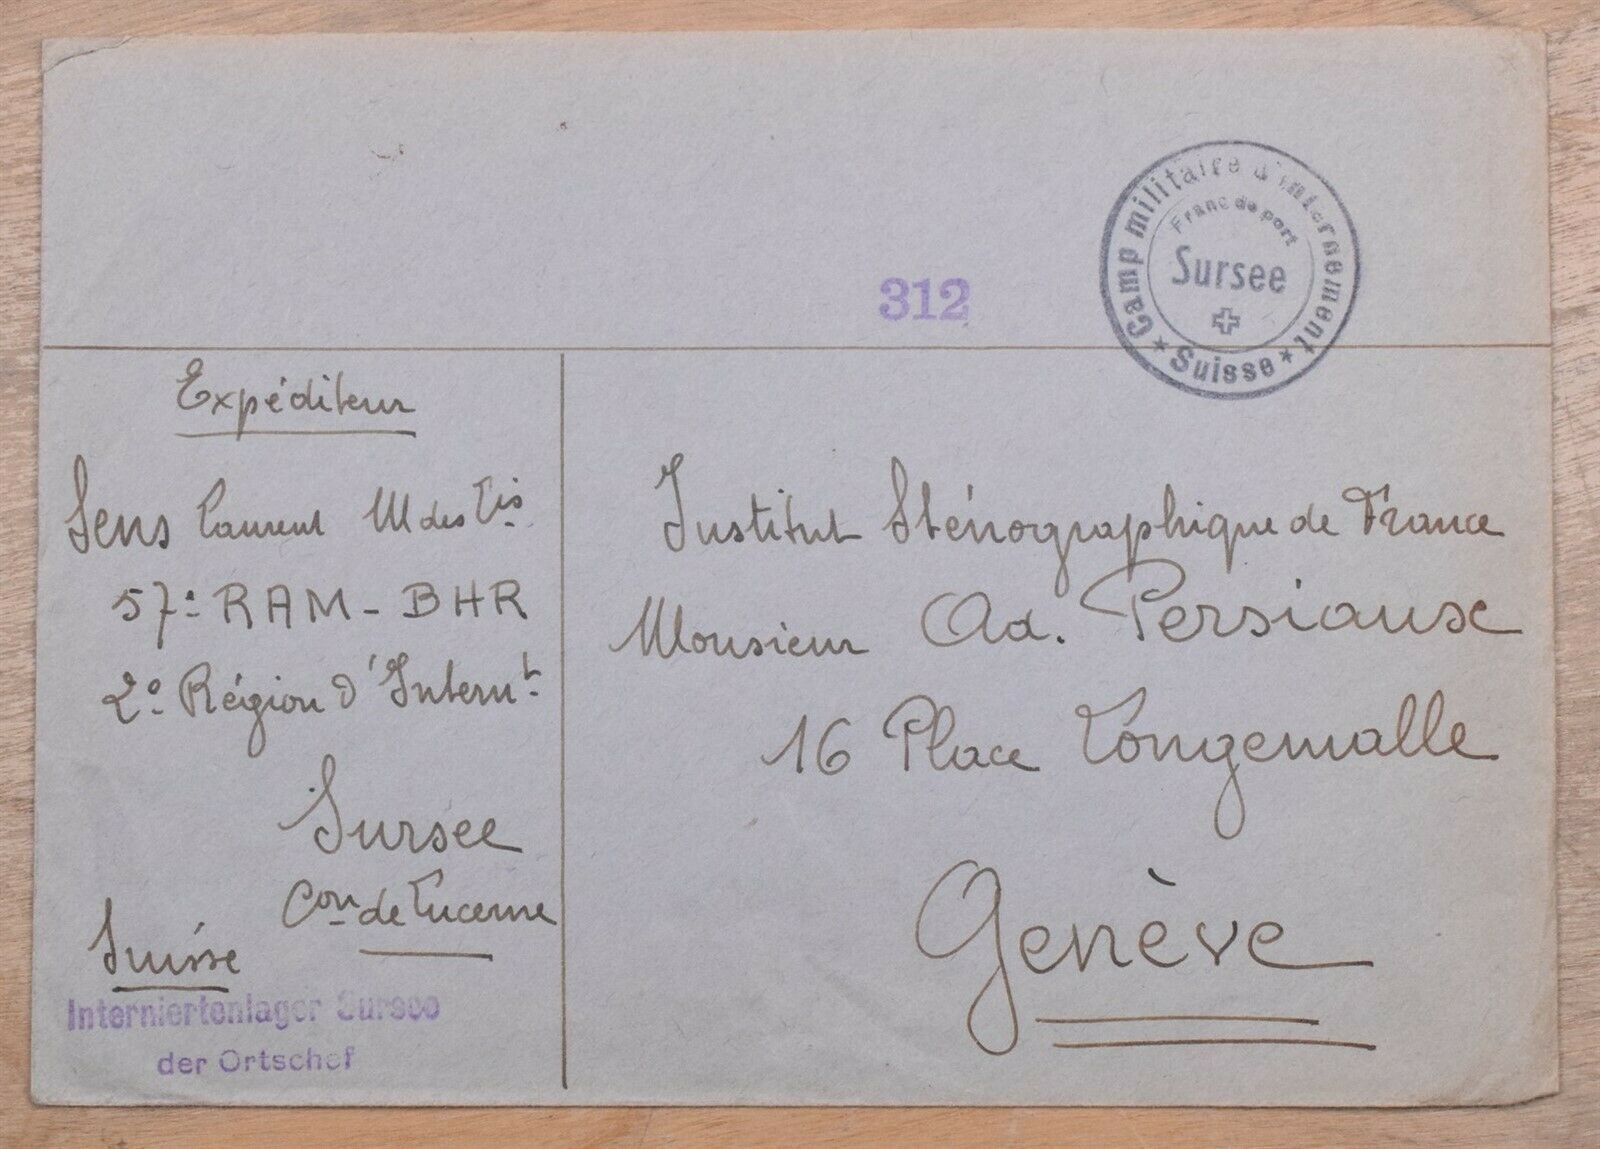 Camp militaire d'internement
Franc de port
Sursee
★ Suisse ★
312
Expéditeur
Sens Laurent M des Lis
57e RAM - BHR
2e Région d'Internt
Sursee
Con de Lucerne
Suisse
Interniertenlager Sursee
der Ortschef
Institut Sténographique de France
Monsieur Ad. Persiaux
16 Place Longemalle
Genève